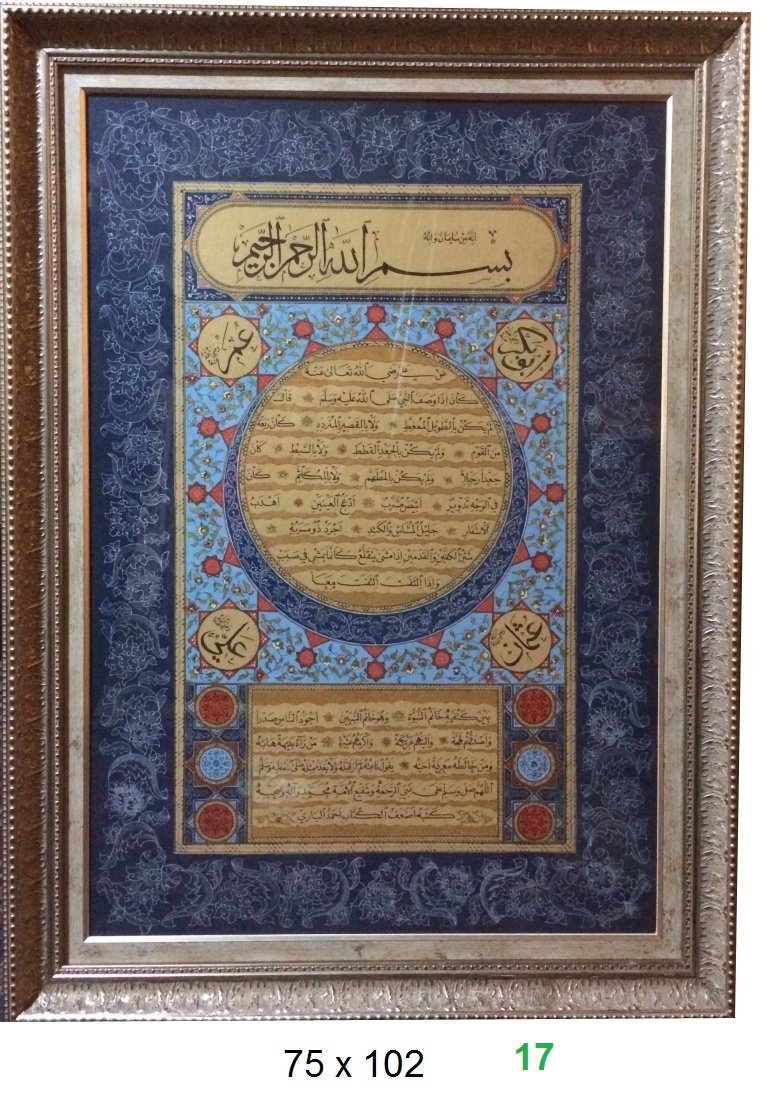 انه من سليمان وانه
بسم الله الرحمن الرحيم
عمر
ابو بكر
عن علي رضي الله تعالى عنه
كان اذا وصف النبي صلى الله عليه وسلم قال
لم يكن بالطويل الممغط ولا بالقصير المتردد كان ربعة
من القوم ولم يكن بالجعد القطط ولا بالسبط كان
جعدا رجلا ولم يكن بالمطهم ولا بالمكلثم كان
في الوجه تدوير ابيض مشرب ادعج العينين اهدب
الاشفار جليل المشاش والكتد اجرد ذو مسربة
شثن الكفين والقدمين اذا مشى يتقلع كانما يمشي في صبب
واذا التفت التفت معا
علي
عثمان
بين كتفيه خاتم النبوة وهو خاتم النبيين اجود الناس صدرا
واصدقهم لهجة والينهم عريكة واكرمهم عشرة من رآه بديهة هابه
ومن خالطه معرفة احبه يقول ناعته لم ار قبله ولا بعده مثله صلى الله عليه وسلم
اللهم صل وسلم على نبي الرحمة وشفيع الامة محمد واله وصحبه
كتبه اضعف الكتاب احمد الباري
75 x 102
17